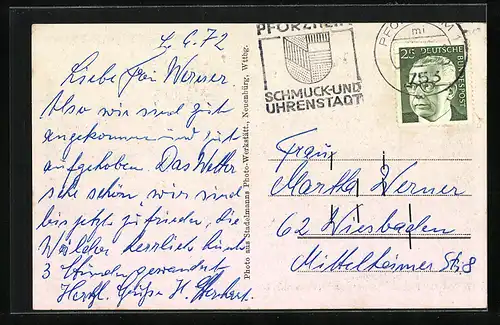 6.72
Liebe Frau Werner
Also wir sind gut
angekommen und gut
aufgehoben. Das Wetter
sehr schön, wir sind
bis jetzt zufrieden, die
Wälder herrlich
3 Stunden gewandert
Herzl. Grüße H.
Photo aus Stadelmanns Photo-Werkstätt., Neuenbürg, Wttbg.
PFORZHEIM
SCHMUCK-UND
UHRENSTADT
PFORZHEIM 1
mi
753
25 DEUTSCHE
BUNDESPOST
Frau
Martha Werner
62 Wiesbaden
Mittelheimer Str. 8